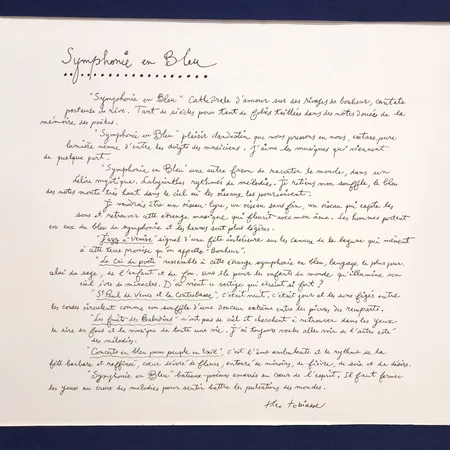 Symphonie en Bleu
"Symphonie en Bleu" Cathédrale d'amour sur des rivages de bonheur, cantate
porteuse de rêve. Tant de siècles pour tant de taillées dans des notes douées de la
mémoire des poètes.
"Symphonie en Bleu" plaisir clandestin que nous pressons en nous, extase pure
lumière venue d'entre les doigts du musicien. J'aime les musiques qui viennent
de quelque part.
"Symphonie en Bleu" une autre façon de raconter le monde, dans son
délire mystique. Labyrinthes rythmés de mélodies. Je retiens mon souffle, le bleu
des notes monte très haut dans le ciel où les oiseaux les poursuivent.
Je voudrais être un oiseau-lyre, un oiseau sans fin, un oiseau qui capte les
sons et retrouver cette étrange musique, qui fleurit avec mon âme. Les hommes portent
en eux du bleu de symphonie et les heures sont plus légères.
"Jazz à Venise" signal d'une fête intérieure sur les canaux de la lagune qui mènent
à cette terre promise qu'on appelle "Bonheur".
"Le Cri du poète" ressemble à cette étrange symphonie en bleu, langage le plus pur,
celui du sage, de l'enfant et du fou. Une île pour les enfants du monde qu'illumine un
ciel ivre de miracles. D'où vient ce vertige qui étreint si fort ?
"St Paul de Vence et la Contrebasse", c'était nuit, c'était jour et les sons figés entre
les cordes circulent comme un souffle d'une douceur extrême entre les pierres du remparts.
"Les fruits des Baladins" n'ont pas de ciel et cherchent à retrouver dans les yeux
le rire des fous et la musique de toute une vie. J'ai toujours voulu aller voir de l'autre côté
des mélodies.
"Concerto en bleu pour peuple en exil", c'est l'âme ambulante et le rythme de la
fête barbare et raffinée, cœur de fleurs, entouré de miroirs, de fièvre, de soie et de désirs.
"Symphonie en Bleu" bateaux-poèmes amarrés au cœur de l'esprit. Il faut fermer
les yeux au creux des mélodies pour sentir battre les pulsations des mondes.
théo tobiasse